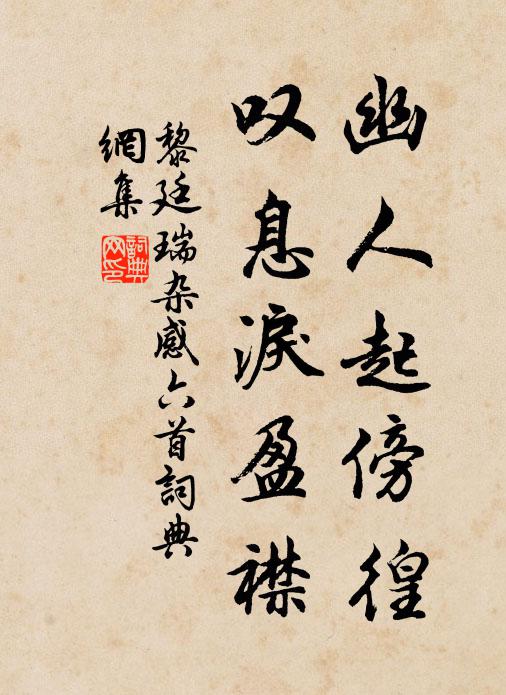 幽人起傍徨
叹息淚盈襟
黎廷瑞杂感六首詞典
網集
詞典网印